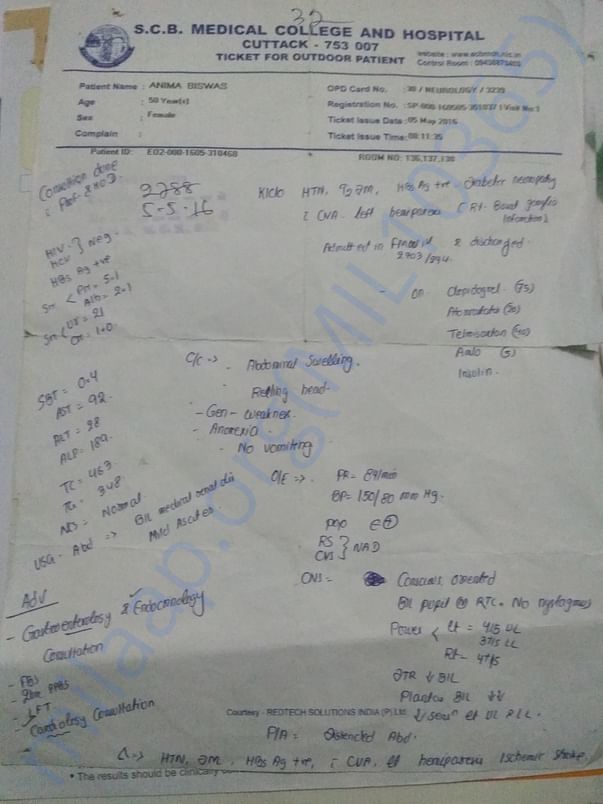 32
S.C.B. MEDICAL COLLEGE AND HOSPITAL
CUTTACK - 753 007
TICKET FOR OUTDOOR PATIENT
Patient Name : ANIMA BISWAS
Age : 50 Year(s)
Sex : Female
Complain :
Patient ID: E02-000-1605-310468
OPD Card No. : 30 / NEUROLOGY / 3239
Registration No.
Ticket Issue Date : 05 May 2016
Ticket Issue Time: 08:11:35
ROOM NO: 136,137,138
Consultation done
2788
5-5-16
K/c/o HTN, T2 DM, HBs Ag +ve - Diabetic nephropathy
c CVA - left hemiparesis (Rt. Basal ganglia
Infarction)
Admitted in & discharged.
2703/294
HIV - } Neg -
HCV
HBs Ag +ve
Sr < Pr = 5.1
Alb = 2.1
Sr < Ur = 21
Cr = 1.0
- on Clopidogrel (75)
Atorvastatin (20)
Telmisartan (40)
Amlo (5)
Insulin.
SBT = 0.4
AST = 92
ALT = 98
ALP = 189
TC = 463
TG = 348
NCS = Normal
USG - Abd => BIL medical renal dis
Mild Ascites
C/C => - Abdominal Swelling.
- Reeling head.
- Gen - weakness
- Anorexia -
- No vomiting
O/E =>. PR = 89/min
BP = 150/80 mm Hg.
RS } NAD
CVS
CNS = Conscious, oriented
BIL pupil RTL. No nystagmus
Power < Lt = 4/5 UL
3+/5 LL
Rt = 4+/5
DTR ↓ BIL
Plantar BIL ↓↓
P/A = Distended Abd.
Adv
- Gastroenterology & Endocrinology
Consultation
- FBS
- 2hr PPBS
- LFT
- Cardiology Consultation
Courtesy - REDTECH SOLUTIONS INDIA (P) Ltd.
Δ => HTN, DM, HBs Ag +ve, c CVA, Lt hemiparesis Ischemic stroke.
• The results should be clinically
milaap.org(MIL103665)